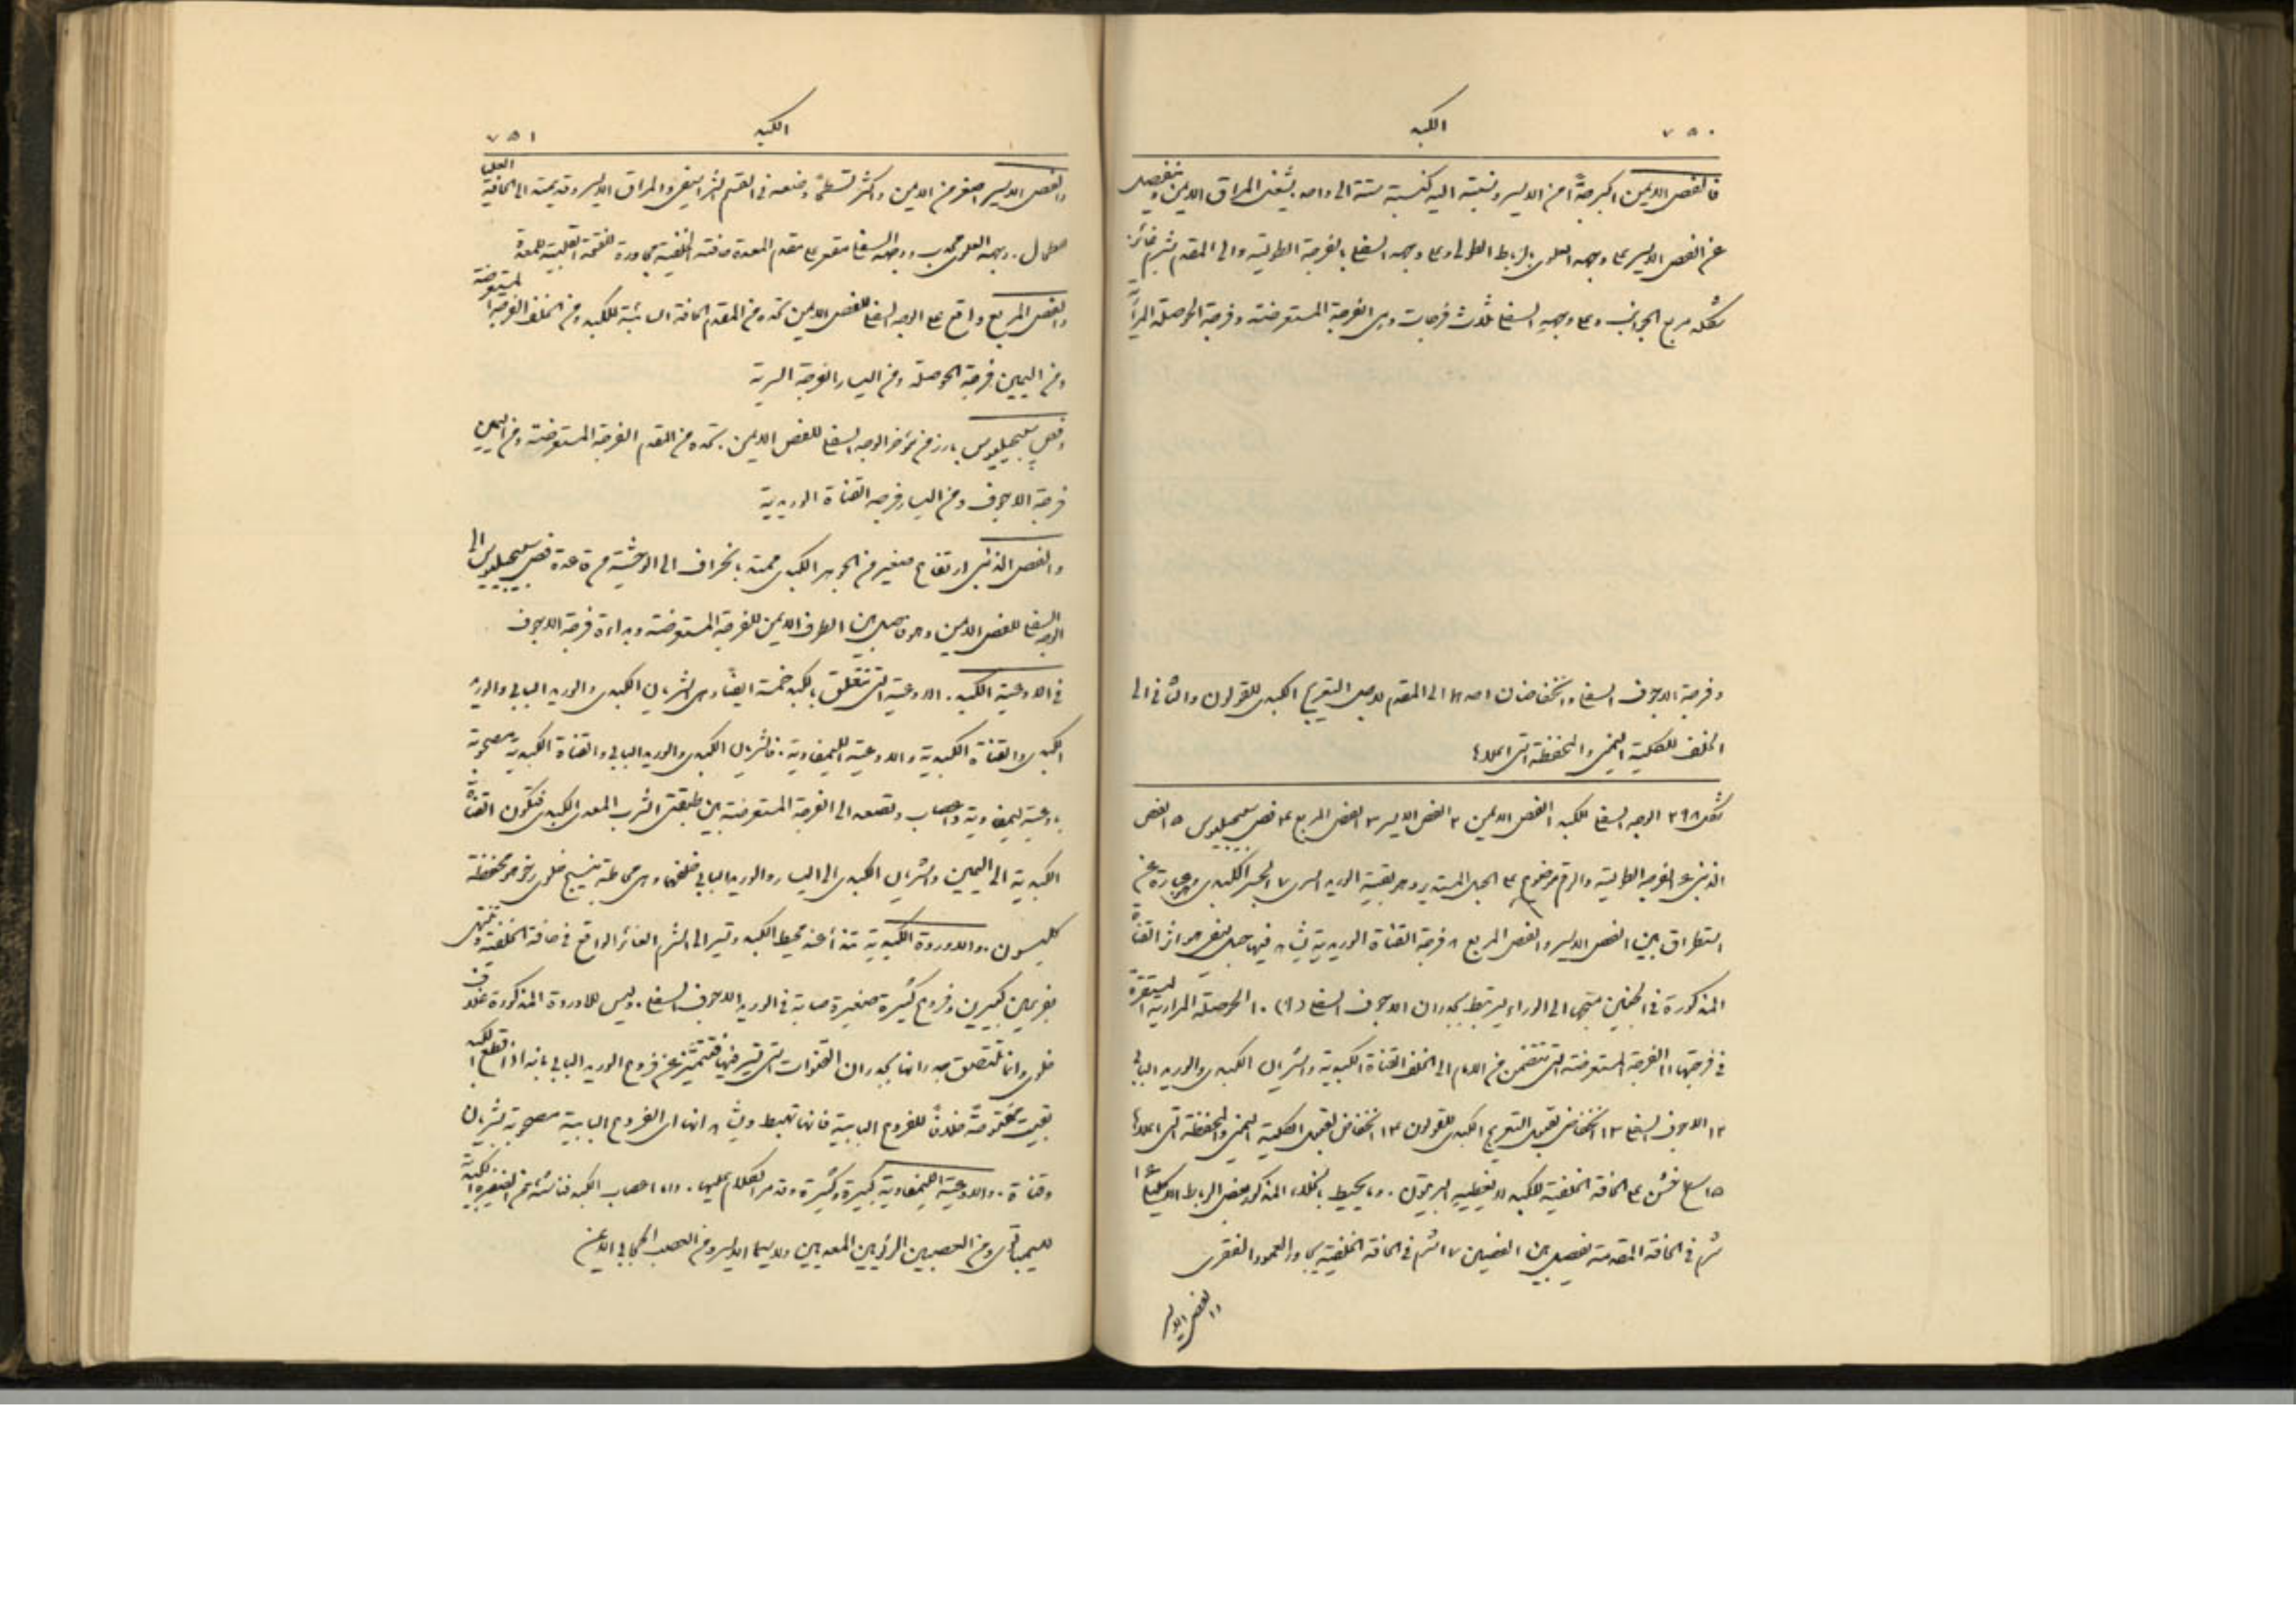 ٧٥٠
الكبد
فالفص الايمن اكبر جدًّا من الايسر ونسبته اليه كنسبة ستة الى واحد يشغل المراق الايمن وينفصل
عن الفص الايسر على وجهه العلوي بالرباط الطولي وعلى وجهه السفلي بالفرجة الطولية والى المقدم بشرم غائر
شكله مربع الجوانب وعلى وجهه السفلي ثلاث فرجات وهي الفرجة المستعرضة وفرجة الحوصلة المرارية
وفرجة الاجوف السفلي وانخفاضان احدها الى المقدم لاجل التعريج الكبدي للقولون والثاني الى
الخلف للكلية اليمنى والمحفظة التي اعلاها
شكل ٢٩٨ الوجه السفلي للكبد ١ الفص الايمن ٢ الفص الايسر ٣ الفص المربع ٤ فص سبيجيليوس ٥ الفص
الذنبي ٦ الفرجة الطولية والرقم مرضوع على الحبل المستدير وهو بقية الوريد السري ٧ الجسر الكبدي وهو عبارة عن
استطراق بين الفص الايسر والفص المربع ٨ فرجة القناة الوريدية يشاهد فيها حبل ليفي هو اثر القناة
المذكورة في الجنين متجها الى الوراء ليرتبط بجدران الاجوف السفلي (٩) ١٠ الحوصلة المرارية المستقرة
في فرجتها ١١ الفرجة المستعرضة التي تتضمن من الامام الى الخلف القناة الكبدية والشريان الكبدي والوريد البابي
١٢ الاجوف السفلي ١٣ انخفاض لقبول التعريج الكبدي للقولون ١٤ انخفاض لقبول الكلية اليمنى والمحفظة التي اعلاها
١٥ سطح خشن على الحافة الخلفية للكبد لا يغطيه البريتون. وما يحيط بالخلاء المذكور بعض الرباط الاكليلي ١٦
شرم في الحافة المقدمة يفصل بين الفصين ١٧ شرم في الحافة الخلفية يجاور العمود الفقري
والفص الايسر
٧٥١
الكبد
والفص الايسر اصغر من الايمن واكثر تسطحًا وضعه في القسم الشراسيفي والمراق الايسر وقد يمتد الى الحافة العليا
للطحال. وجهه العلوي محدب ووجهه السفلي مقعر على مقدم المعدة حافته الخلفية مجاورة للفتحة القلبية للمعدة
والفص المربع واقع على الوجه السفلي للفص الايمن تحده من المقدم الحافة السائبة للكبد ومن الخلف الفرجة المستعرضة
ومن اليمين فرجة الحوصلة ومن اليسار الفرجة السرية
وفص سبيجيليوس بارز من مؤخر الوجه السفلي للفص الايمن. تحده من المقدم الفرجة المستعرضة ومن اليمين
فرجة الاجوف ومن اليسار فرجة القناة الوريدية
والفص الذنبي ارتفاع صغير من الجوهر الكبدي ممتد بانحراف الى الوحشية من قاعدة فص سبيجيليوس الى
الوجه السفلي للفص الايمن وهو فاصل بين الطرف الايمن للفرجة المستعرضة وبداءة فرجة الاجوف
في الاوعية الكبد. الاوعية التي تتعلق بالكبد خمسة ايضًا وهي الشريان الكبدي والوريد البابي والوريد
الكبدي والقناة الكبدية والاوعية الليمفاوية. فالشريان الكبدي والوريد البابي والقناة الكبدية مصحوبة
باوعية ليمفاوية واعصاب وتصعد الى الفرجة المستعرضة بين طبقتي الثرب المعدي الكبدي فتكون القناة
الكبدية الى اليمين والشريان الكبدي الى اليسار والوريد البابي خلفهما وهي محاطة بنسيج خلوي رخو هو محفظة
كليسون. والاوردة الكبدية تبتدأ عند محيط الكبد وتسير الى الشرم الغائر الواقع في حافته الخلفية وتنتهي
بفرعين كبيرين وفروع كثيرة صغيرة صابة في الوريد الاجوف السفلي. وليس للاوردة المذكورة غلاف
خلوي وانما تلتصق جدرانها بجدران القنوات التي تسير فيها فتتميز عن فروع الوريد البابي بانه اذا قطع الكبد
بقيت مفتوحة خلافًا للفروع البابية فانها تهبط ويشاهد انها اي الفروع البابية مصحوبة بشريان
وقناة. والاوعية الليمفاوية كبيرة وكثيرة وقد مر الكلام عليها. واما اعصاب الكبد فناشئة من الضفيرة الكبدية
للسيمباتوي ومن العصبين الرئويين المعديين ولاسيما الايسر ومن العصب الحجابي الايمن